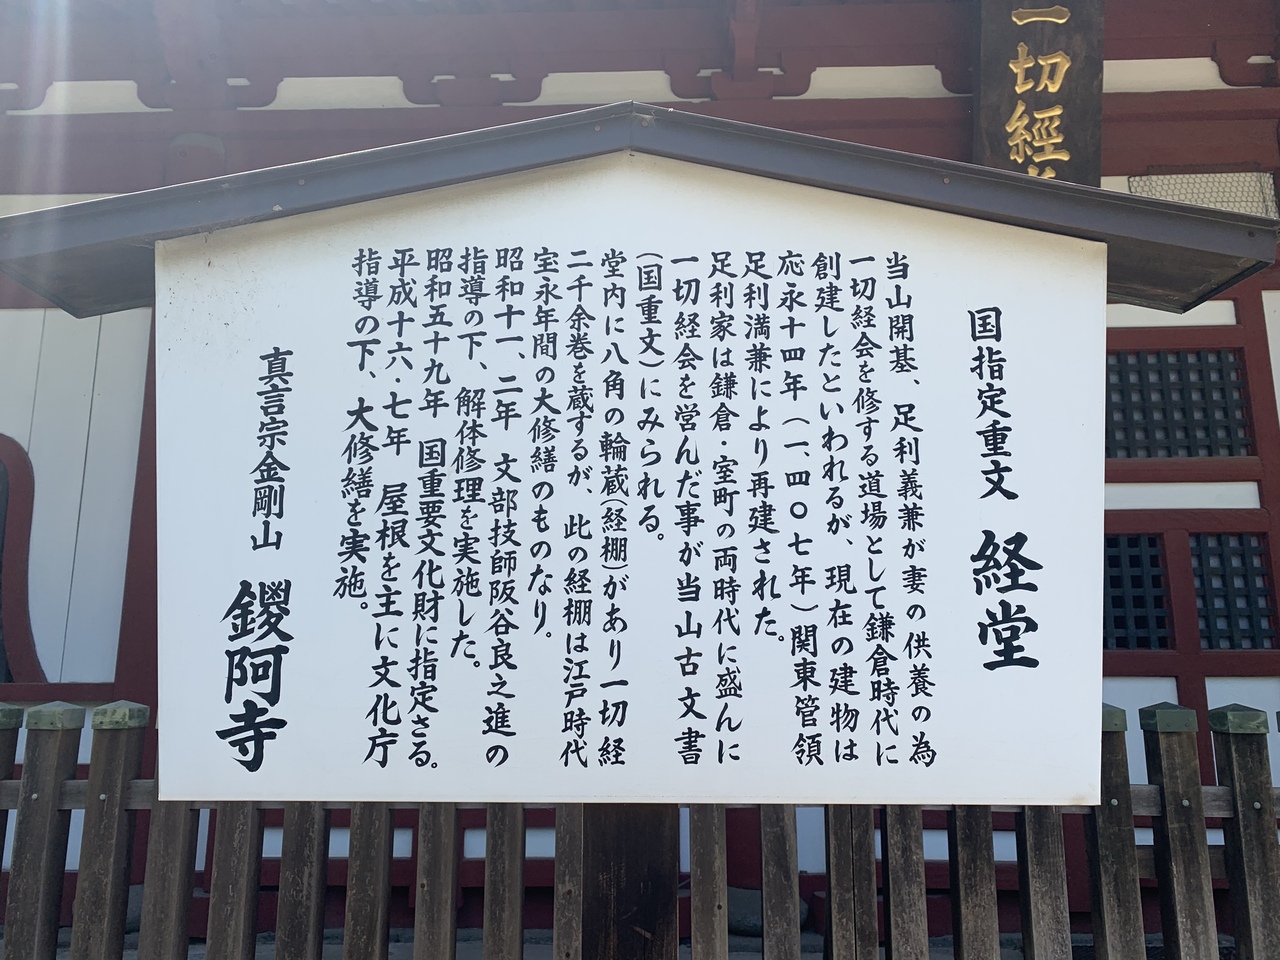 一切經
国指定重文 経堂
当山開基、足利義兼が妻の供養の為
一切経会を修する道場として鎌倉時代に
創建したといわれるが、現在の建物は
応永十四年（一、四〇七年）関東管領
足利満兼により再建された。
足利家は鎌倉・室町の両時代に盛んに
一切経会を営んだ事が当山古文書
（国重文）にみられる。
堂内に八角の輪蔵（経棚）があり一切経
二千余巻を蔵するが、此の経棚は江戸時代
宝永年間の大修繕のものなり。
昭和十一、二年 文部技師阪谷良之進の
指導の下、解体修理を実施した。
昭和五十九年 国重要文化財に指定さる。
平成十六・七年 屋根を主に文化庁
指導の下、大修繕を実施。
真言宗金剛山 鑁阿寺